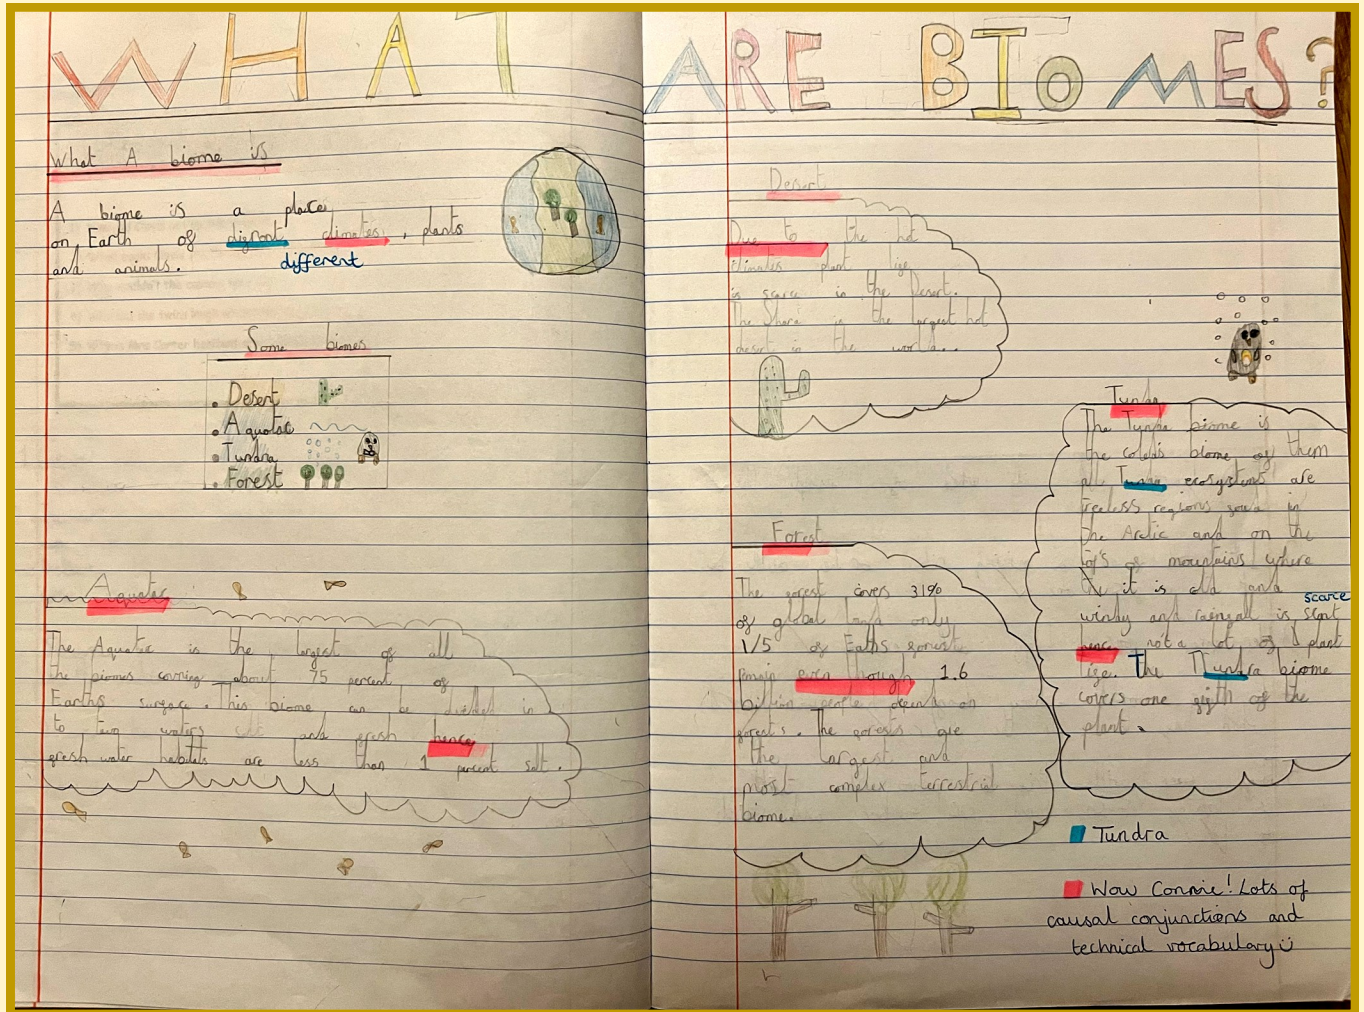 WHAT ARE BIOMES?
What A biome is
A biome is a place
on Earth of difront climates, plants
and animals.
different
Some biomes
Desert
Aquatic
Tundra
Forest
Aquatic
The Aquatic is the largest of all
the biomes covring about 75 percent of
Earths surface. This biome can be divided in
to two waters salt and fresh hence
fresh water habitats are less than 1 percent salt.
Desert
Due to the hot
climates plant life
is scarce in the Desert.
The Shara is the largest hot
desert in the world...
Forest
The forest covers 31%
of global land and only
1/5 of Eaths forest
remain even though 1.6
billion people depend on
forest's. The forests are
the largest and
most complex terrestrial
biome.
Tundra
The Tundra biome is
the coldis biome of them
all Tundra ecosystems are
treeless regions found in
the Arctic and on the
top's of mountains where
it is cold and
scarce
windy and rainfall is scant
hence not a lot of plant
life. The Tundra biome
covers one fifth of the
plant.
Tundra
Wow Connie! Lots of
causal conjunctions and
technical vocabulary